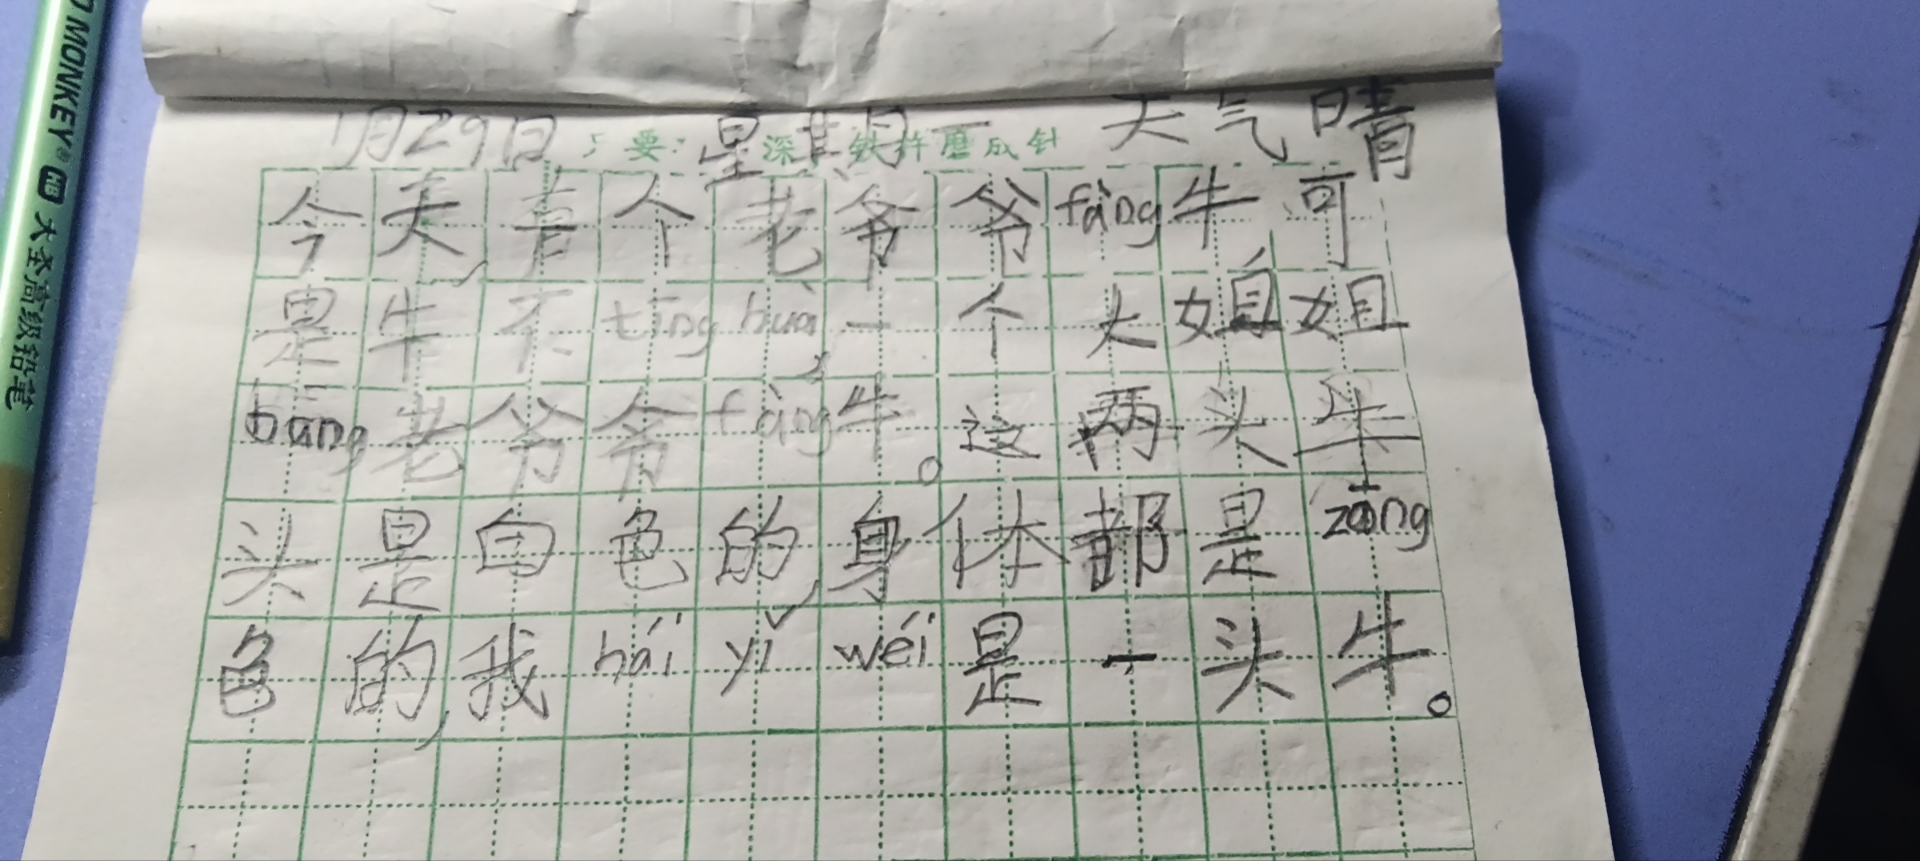 MONKEY HB 大全高级铅笔
1月29日 星期一 天气晴
要 深 铁杵磨成针
今天,有个老爷爷fàng牛可
是牛不tīng huà,一个大姐姐
bāng老爷爷fàng牛。这两头牛
头是白色的,身体都是zōng
色的,我hái yǐ wéi是一头牛。